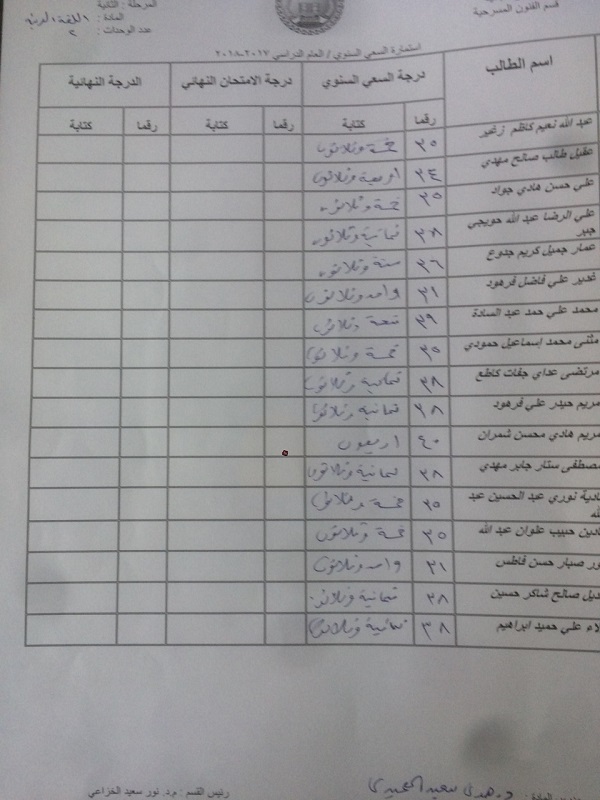 قسم الفنون المسرحية
المرحلة : الثانية
المادة : اللغة العربية
عدد الوحدات : ٢
استمارة السعي السنوي / العام الدراسي ٢٠١٧-٢٠١٨
اسم الطالب درجة السعي السنوي درجة الامتحان النهائي الدرجة النهائية
رقما كتابة رقما كتابة رقما كتابة
عبد الله نعيم كاظم زغير ٣٥ خمسة وثلاثون
عقيل طالب صالح مهدي ٣٤ اربعة وثلاثون
علي حسن هادي جواد ٣٥ خمسة وثلاثون
علي الرضا عبد الله حويجي جبر ٣٨ ثمانية وثلاثون
عمار جميل كريم جدوع ٣٦ ستة وثلاثون
غدير علي فاضل فرهود ٣١ واحد وثلاثون
محمد علي حمد عبد السادة ٣٩ تسعة وثلاثون
مثنى محمد إسماعيل حمودي ٣٥ خمسة وثلاثون
مرتضى عداي جفات كاطع ٣٨ ثمانية وثلاثون
مريم حيدر علي فرهود ٣٨ ثمانية وثلاثون
مريم هادي محسن شمران ٤٠ اربعون
مصطفى ستار جابر مهدي ٣٨ ثمانية وثلاثون
ادية نوري عبد الحسين عبد الله ٣٥ خمسة وثلاثون
ادين حبيب علوان عبد الله ٣٥ خمسة وثلاثون
ور صبار حسن فاطس ٣١ واحد وثلاثون
ديل صالح شاكر حسين ٣٨ ثمانية وثلاثون
لاء علي حميد ابراهيم ٣٨ ثمانية وثلاثون
المادة : د. هدى سعيد
رئيس القسم : م.د. نور سعيد الخزاعي